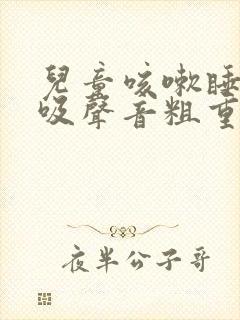 兒童咳嗽睡
吸聲音粗重
夜半公子哥